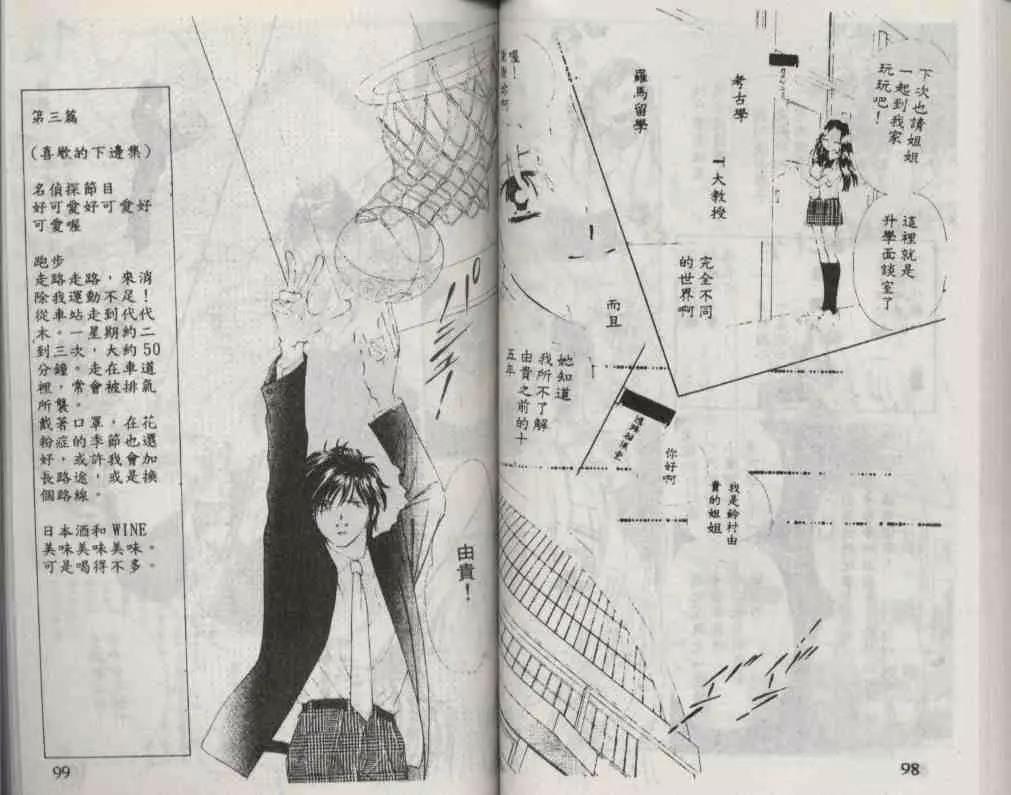 下次也請姐姐
一起到我家
玩玩吧！
這裡就是
升學面談室了
考古學
T大教授
羅馬留學
完全不同
的世界啊
而且
她知道
我所不了解
由貴之前的十
五年
你好啊
我是鈴村由
貴的姐姐
喔！
98
由貴！
第三篇
(喜歡的下邊集)
名偵探節目
好可愛好可愛好
可愛喔
跑步
走路走路，來消
除我運動不足！
從車站走到代代
木。一星期約二
到三次，大約50
分鐘。走在車道
裡，常會被排氣
所襲。
戴著口罩，在花
粉症的季節也還
好，或許我會加
長路途，或是換
個路線。
日本酒和WINE
美味美味美味。
可是喝得不多。
99